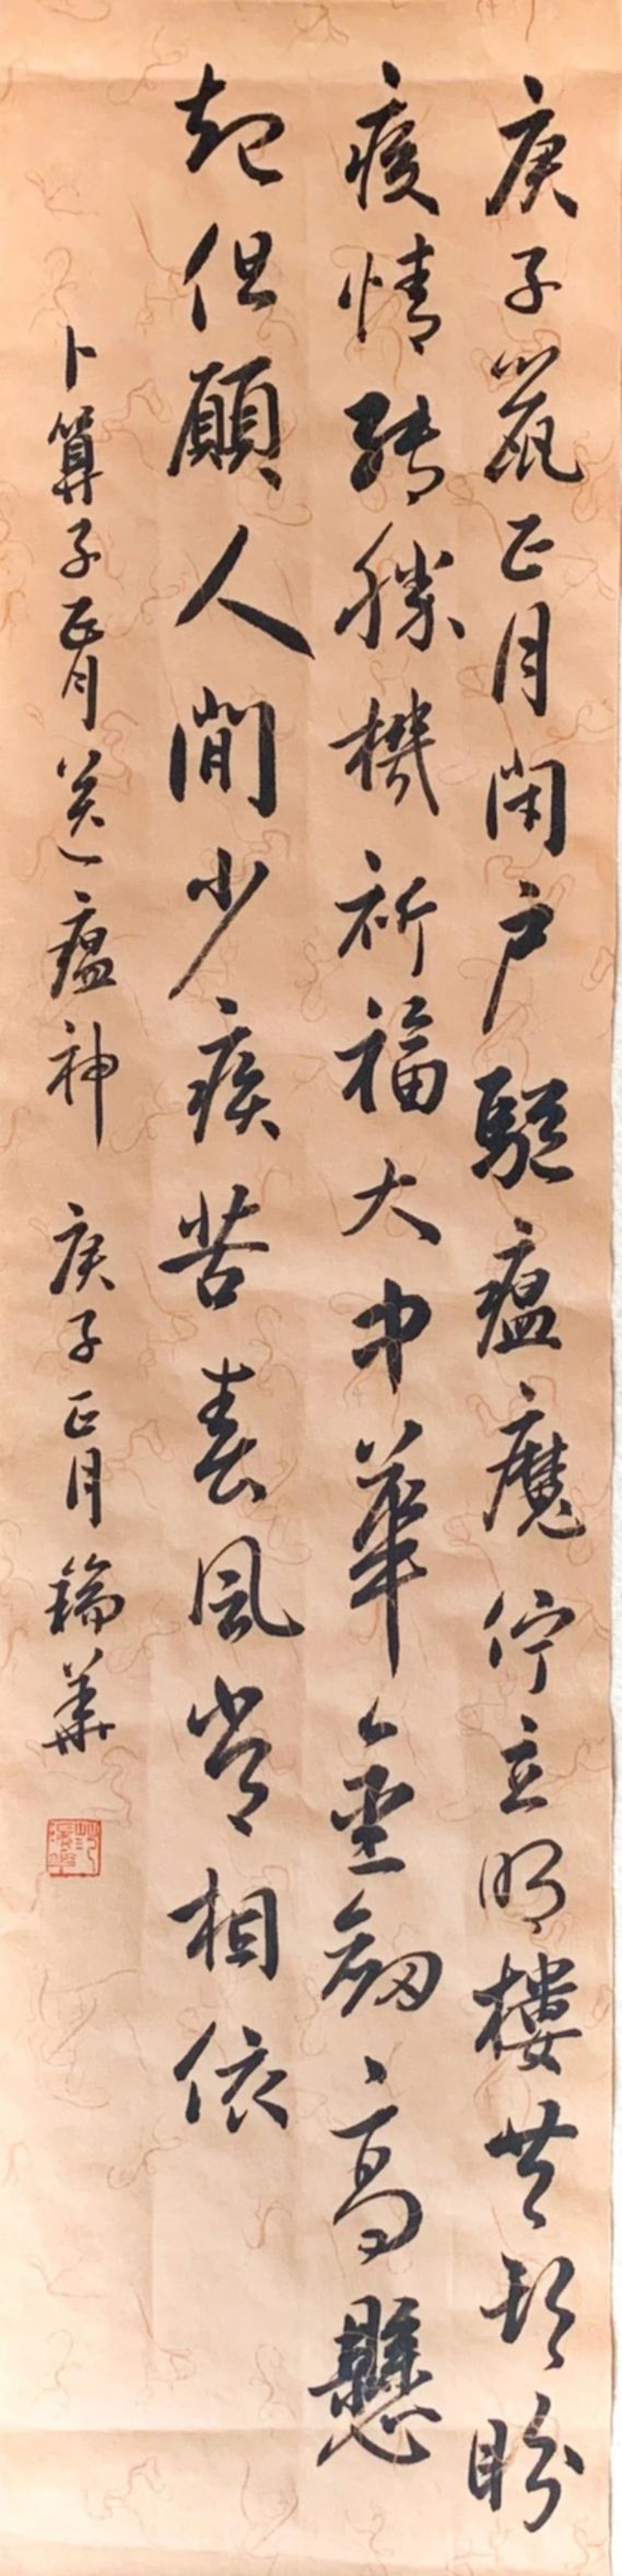 庚子荒正月闭户駆瘟魔佇立明樓共期盼
疫情转勝機祈福大中華金劍高懸
起但願人間少疾苦春風常相依
卜算子正月送瘟神 庚子正月 華